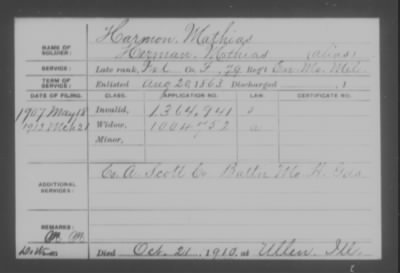 Harmon, Mathias
NAME OF SOLDIER: Herman, Mathias (alias)
SERVICE: Late rank, Pvt Co. F, 79 Reg't En. Mo. Mil.
TERM OF SERVICE: Enlisted Aug 20, 1863 Discharged , 1
DATE OF FILING. CLASS. APPLICATION NO. LAW. CERTIFICATE NO.
1907 May 18 Invalid, 1364,941
1912 Mch 21 Widow, 1004752
Minor,
ADDITIONAL SERVICES: Co. A Scott Co. Batt'n Mo. H. Gds
REMARKS:
Died Oct. 21, 1910, at Ullin, Ill.